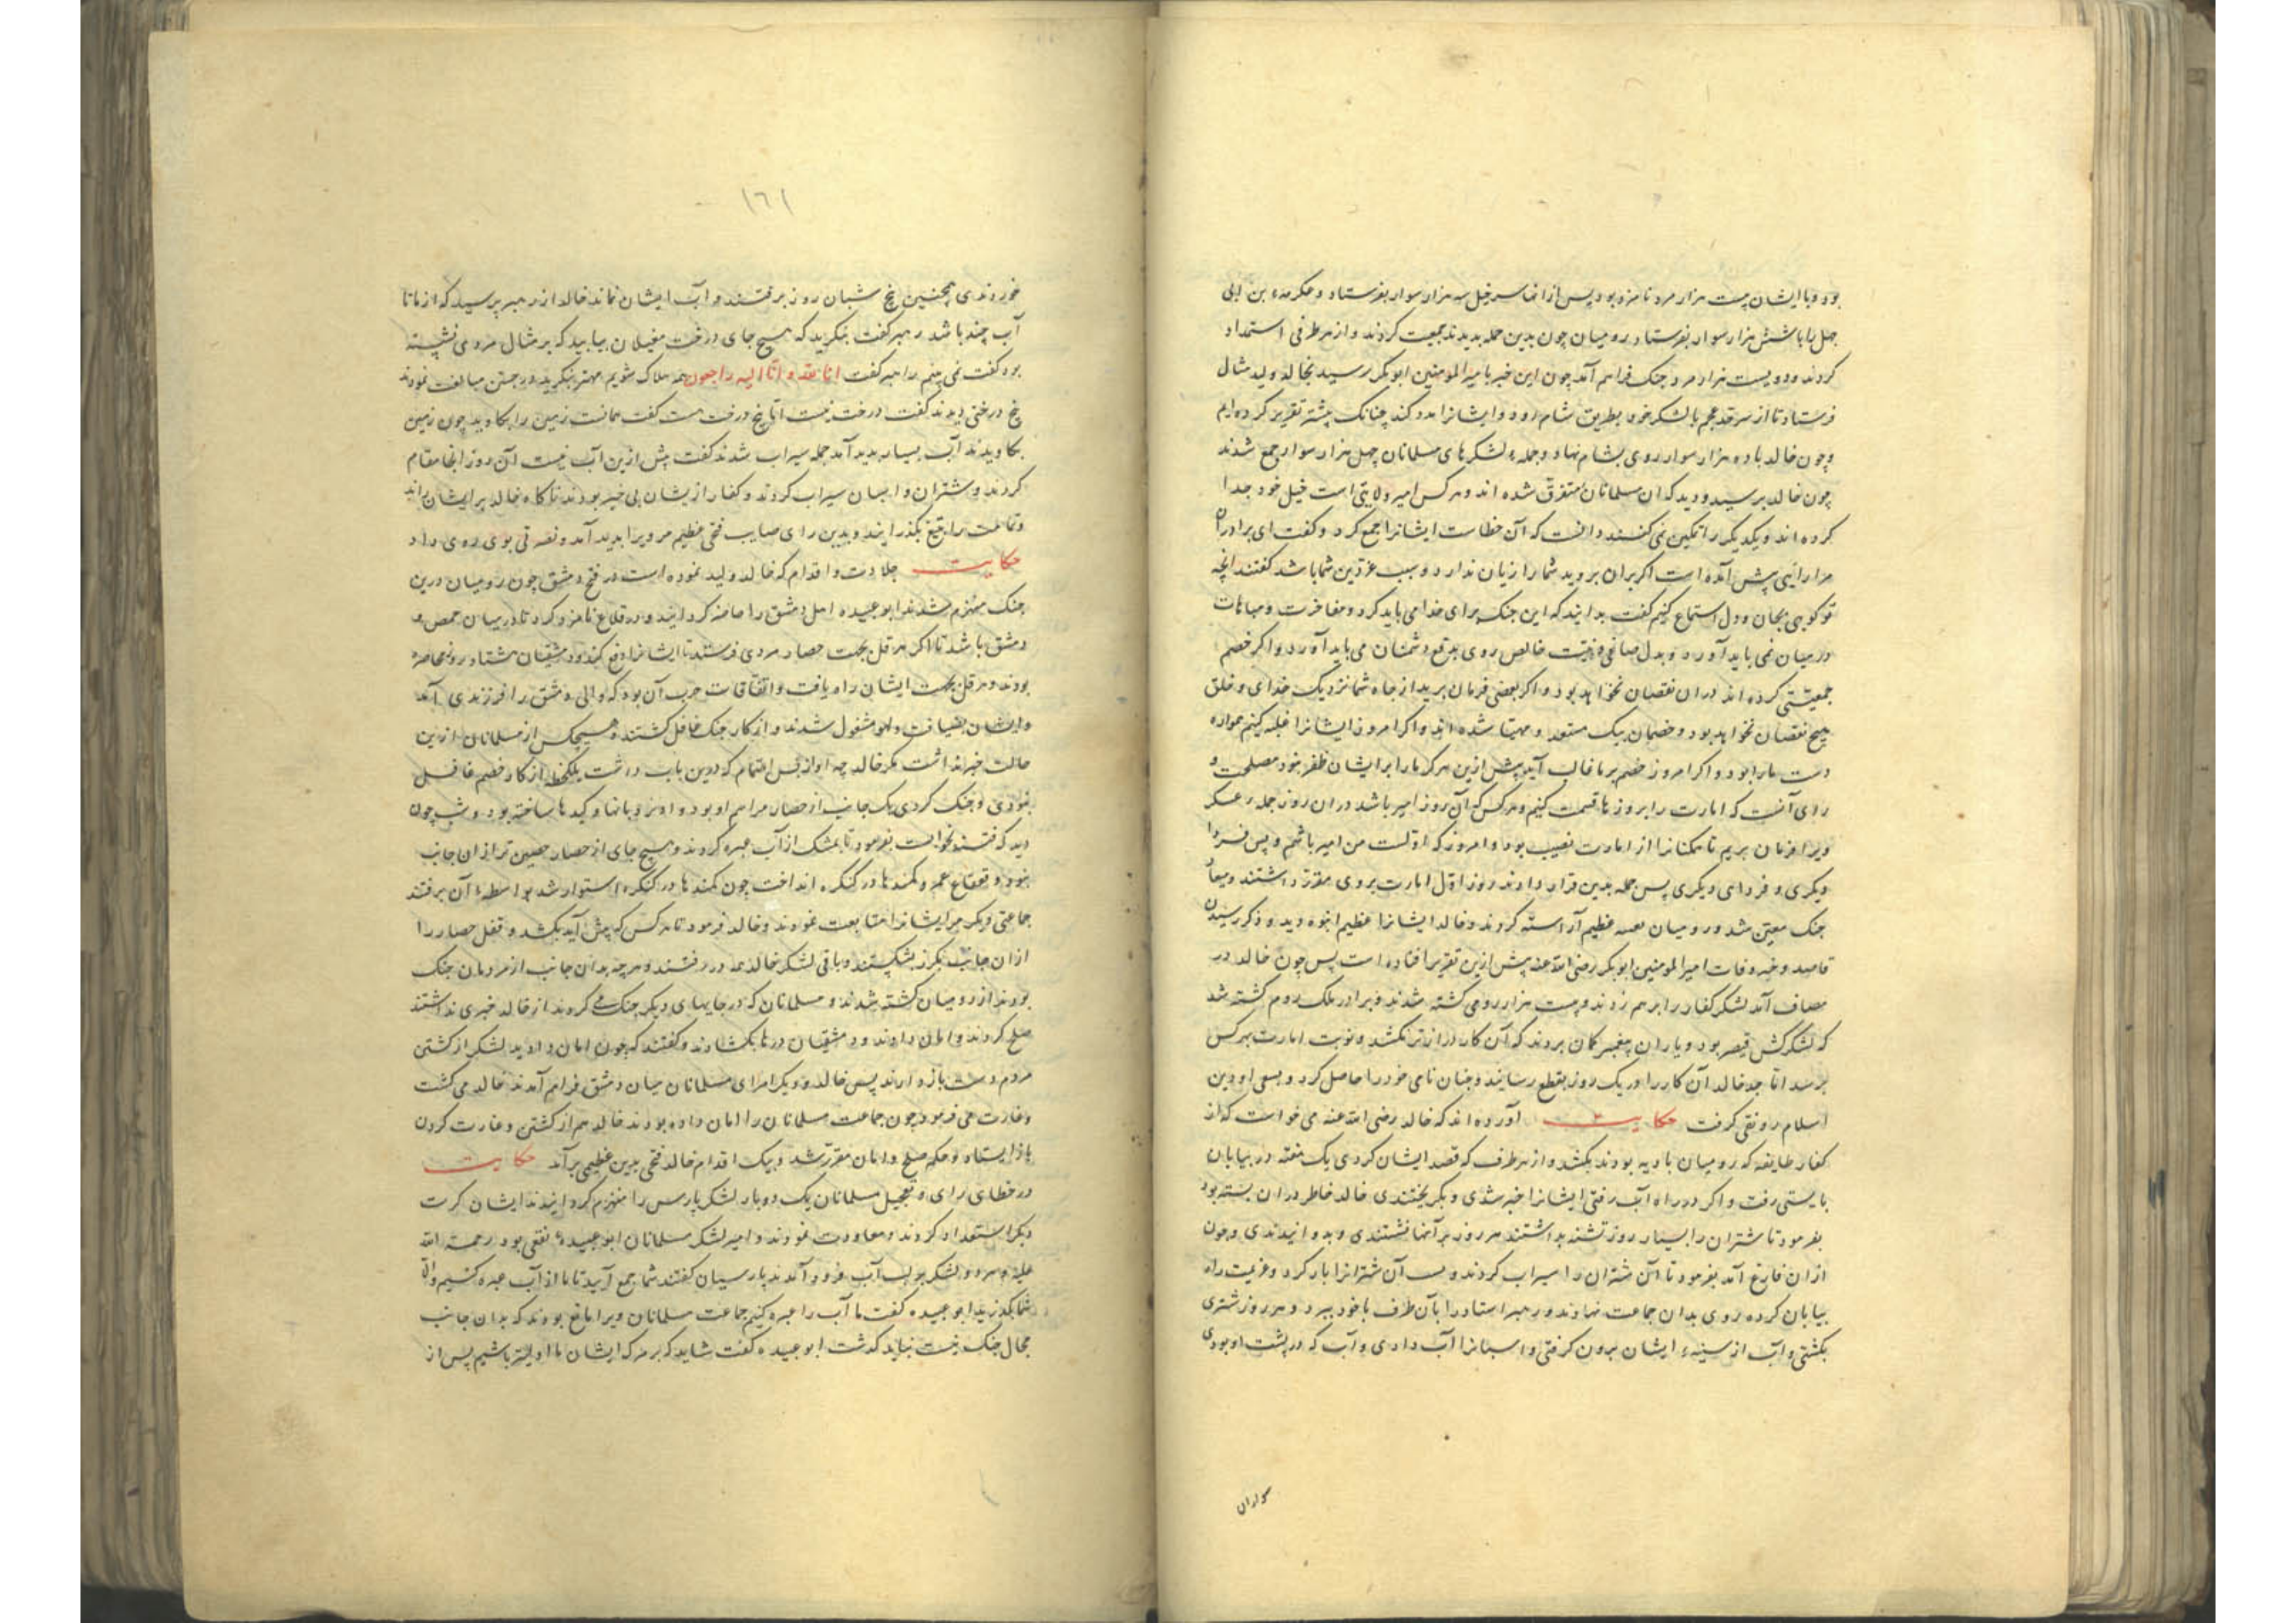 بود و با ایشان بیست هزار مرد نامزد بود پس از انجا سرخیل سه هزار سوار بفرستاد و عکرمه بن ابی
جهل را با شش هزار سوار بفرستاد رومیان چون بدین جمله بدیدند جمعیت کردند و از هر طرفی استمداد
کردند و دویست هزار مرد جنک فراهم آمد چون این خبر بامیر المومنین ابوبکر رسید بخالد ولید مثال
فرستاد تا از سرحد عجم با لشکر خود بطریق شام رود و ایشانرا مدد کند چنانک پیشتر تقریر کرده ام
و چون خالد با ده هزار سوار روی بشام نهاد و جمله لشکرهای مسلمانان چهل هزار سوار جمع شدند
چون خالد برسید و دید که ان مسلمانان متفرق شده اند و هر کس امیر ولایتی است خیل خود جدا
کرده اند و یکدیکر را تمکین نمی کنند دانست که آن خطاست ایشانرا جمع کرد و کفت ای برادران
مرا رائیی پیش آمده است اکر بران بروید شما را زیان ندارد و سبب عز دین شما باشد کفتند انچه
تو کویی بجان و دل استماع کنیم کفت بدانید که این جنک برای خدا می باید کرد و مفاخرت و مباهات
در میان نمی باید آورد و بدل صافی و نیت خالص روی بدفع دشمنان می باید آورد و اکر خصم
جمعیتی کرده اند در ان نقصان نخواهد بود و اکر بعضی فرمان برید از جاه شما نزدیک خدای و خلق
هیچ نقصان نخواهد بود و خصمان بیک مستعد و مهیا شده اند و اکر امروز ایشانرا غلبه کنیم همواره
دست ما را بود و اکر امروز خصم بر ما غالب آید پیش ازین هرکز ما را بر ایشان ظفر نبود مصلحت و
رای آنست که امارت را بروزها قسمت کنیم و هر کس که آن روز امیر باشد در ان روز جمله عسکر
ویرا فرمان بریم تا همکنانرا از امارت نصیب بود و امروز که اولست من امیر باشم و پس فردا
دیکری و فردای دیکری پس جمله بدین قرار دادند روز اول امارت بروی مقرر داشتند و میعاد
جنک معین شد و رومیان تعبیه عظیم آراسته کردند و خالد ایشانرا عظیم انبوه دید و ذکر رسیدن
قاصد و خبر وفات امیر المومنین ابوبکر رضی الله عنه پیش ازین تقریر افتاده است پس چون خالد در
مصاف آمد لشکر کفار را بر هم زدند و بیست هزار رومی کشته شدند و برادر ملک روم کشته شد
که لشکرکش قیصر بود و یاران پیغمبر کمان بردند که آن کار دراز تر بکشد و نوبت امارت بهر کس
برسد اما جد خالد آن کار را در یک روز بقطع رسانید و چنان نامی خود را حاصل کرد و بسعی او دین
اسلام رونقی کرفت حکایت آورده اند که خالد رضی الله عنه می خواست که از
کفار طایفه که رومیان بادیه بودند بکشد و از هر طرف که قصد ایشان کردی یک هفته در بیابان
بایستی رفت و اکر در راه آب رفتی ایشانرا خبر شدی و بکریختندی خالد خاطر در ان بسته بود
بفرمود تا شتران را بسیار روز تشنه بداشتند هر روز بر آنها نشستندی و بدوانیدندی و چون
از ان فارغ آمد بفرمود تا آن شتران را سیراب کردند و لب آن شترانرا بار کرد و عزیمت راه
بیابان کرده روی بدان جماعت نهادند و رهبر استاد را بآن طرف با خود ببرد و هر روز شتری
بکشتی و آب از سینه ایشان برون کرفتی و اسبانرا آب دادی و آب که در پشت او بودی
سواران
١٦١
خوردندی همچنین پنج شبان روز برفتند و آب ایشان نماند خالد از رهبر پرسید که از ما تا
آب چند باشد رهبر کفت بنکرید که هیچ جای درخت مغیلان بیابید که بر مثال مردی نشسته
بود کفت نمی بینم راهبر کفت انا لله و انا الیه راجعون همه هلاک شویم بهتر بنکرید در جستن مبالغت نمودند
بیخ درختی دیدند کفت درخت نیست اما بیخ درخت هست کفت همانست زمین را بکاوید چون زمین
بکاویدند آب بسیار پدید آمد جمله سیراب شدند کفت پیش ازین آب نیست آن روز انجا مقام
کردند و شتران و اسبان سیراب کردند و کفار از یشان بی خبر بودند تا کاه خالد بر ایشان راند
و تمامت را بتیغ بکذرانید و بدین رای صایب فتحی عظیم مر ویرا پدید آمد و نصرتی بوی روی داد
حکایت جلادت و اقدام که خالد ولید نموده است در فتح دمشق چون رومیان درین
جنک منهزم شدند ابو عبیده اهل دمشق را محاصره کردانید و در قلاع نامزد کرد تا در میان حمص و
دمشق باشد تا اکر هرقل بجهت حصار مردی فرستد تا ایشانرا دفع کنند و دمشقیان هشتاد روز محاصره
بودند و هرقل بجهت ایشان راه یافت و اتفاقات حرب آن بود که والی دمشق را فرزندی آمد
و ایشان بضیافت و لهو مشغول شدند و از کار جنک غافل کشتند و هیچکس از مسلمانان ازین
حالت خبر نداشت مکر خالد چه او از بس اهتمام که درین باب داشت یکلحظه از کار خصم غافل
نبودی و جنک کردی یک جانب از حصار مراسم او بود و او نردبانها و کمندها ساخته بود و شب چون
دید که فتنه نخواست بفرمود تا بمشک از آب عبره کردند و هیچ جای از حصار حصین تر از ان جانب
نبود و قعقاع عمرو کمندها در کنکره انداخت چون کمندها در کنکره استوار شد بواسطه آن برفتند
جماعتی دیکر مر ایشانرا متابعت نمودند و خالد فرمود تا هر کس که پیش آید بکشند و قفل حصار را
از ان جانب بکرز بشکستند و باقی لشکر خالد همه در رفتند و هر چه بدان جانب از مردمان جنک
بودند از رومیان کشته شدند و مسلمانان که در جایهای دیکر جنک می کردند از خالد خبری نداشتند
صلح کردند و امان دادند و دمشقیان درها بکشادند و کفتند که چون امان دادید لشکر از کشتن
مردم دست باز دارند پس خالد و دیکر امرای مسلمانان میان دمشق فراهم آمدند خالد می کشت
و غارت می فرمود چون جماعت مسلمانان را امان داده بودند خالد هم از کشتن و غارت کردن
باز ایستاد و حکم صلح و امان مقرر شد و بیک اقدام خالد فتحی بدین عظیمی برآمد حکایت
در خطای رای و تعجیل مسلمانان یک دو بار لشکر پارس را منهزم کردانیدند ایشان کرت
دیکر استعداد کردند و معاودت نمودند و امیر لشکر مسلمانان ابو عبیده ثقفی بود رحمة الله
علیه و هر دو لشکر بر لب آب فرود آمدند پارسیان کفتند شما جمع آیید تا ما از آب عبره کنیم و الا
شما بکذرید ابو عبیده کفت ما آب را عبره کنیم جماعت مسلمانان ویرا مانع بودند که بدان جانب
مجال جنک نیست نباید کذشت ابو عبیده کفت شاید که بر مرک ایشان ما دلیرتر باشیم پس از